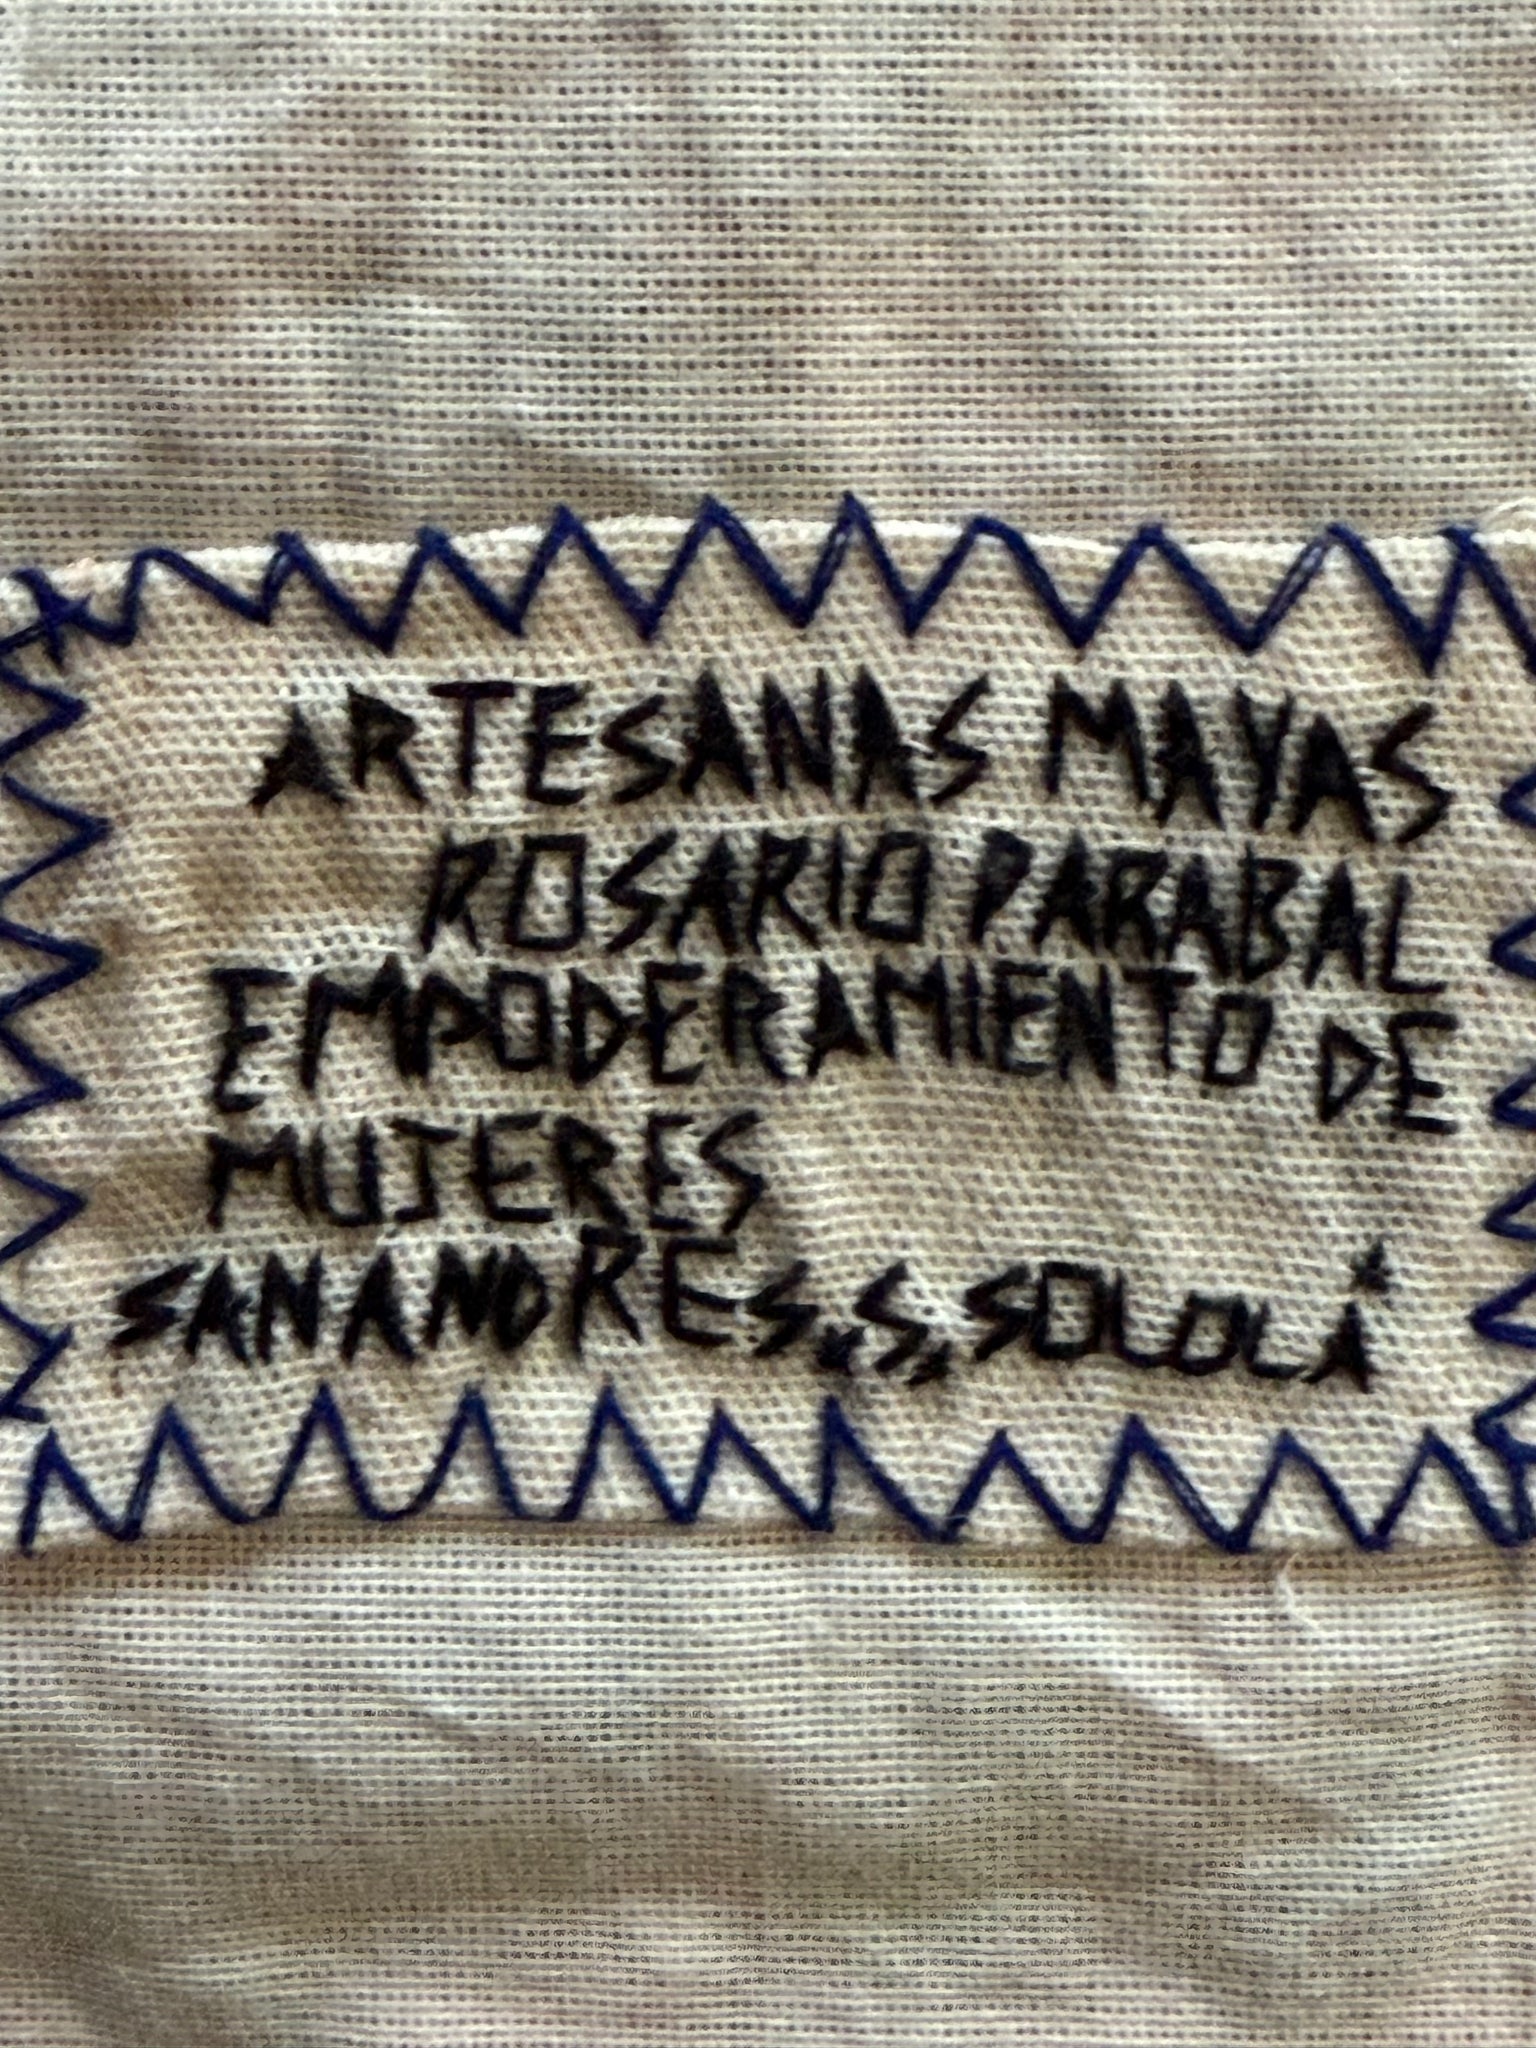 ARTESANAS MAYAS
ROSARIO PARABAL
EMPODERAMIENTO DE
MUJERES
SAN ANDRES.S.SOLOLÁ